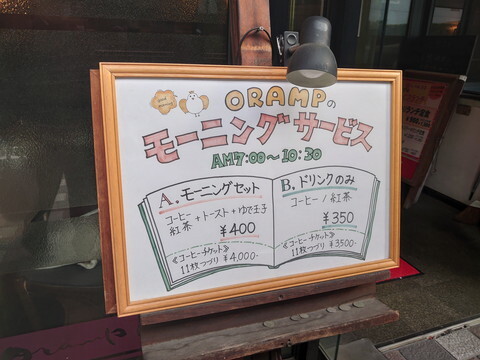 ORAMPの
モーニングサービス
AM7:00〜10:30
A.モーニングセット
コーヒー
紅茶 +トースト+ゆで玉子
¥400
≪コーヒーチケット≫
11枚つづり ¥4,000-
B.ドリンクのみ
コーヒー / 紅茶
¥350
≪コーヒーチケット≫
11枚つづり ¥3500-